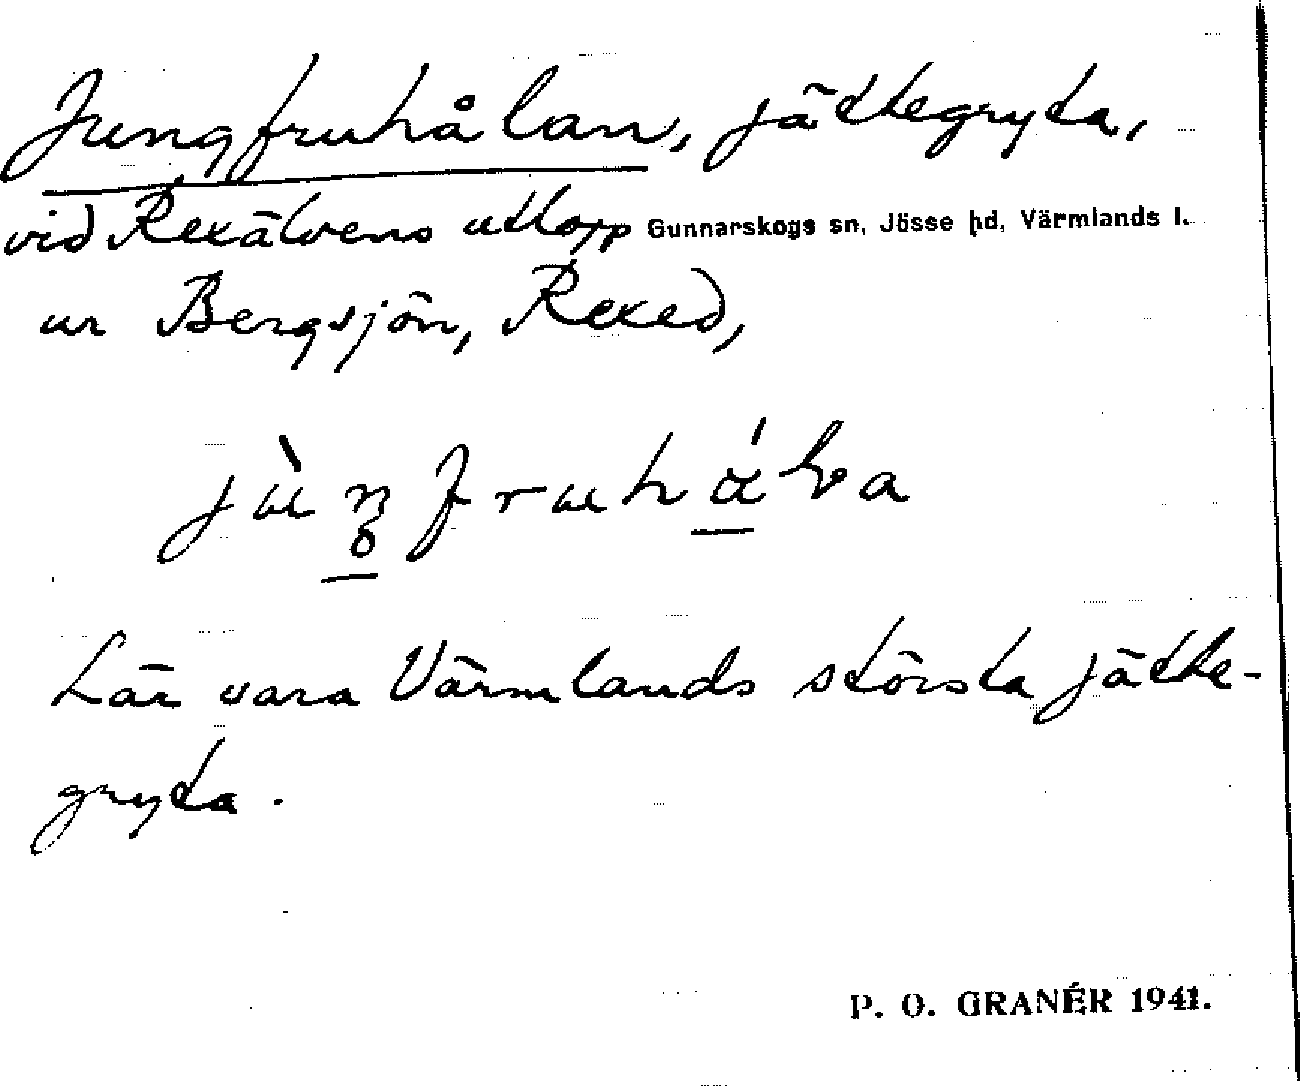 Jungfruhålan, jättegryta,
vid Rexälvens utlopp Gunnarskogs sn, Jösse hd, Värmlands l.
ur Bergsjön, Rexed,
Lär vara Värmlands största jätte-
gryta.
P. O. GRANÉR 1941.